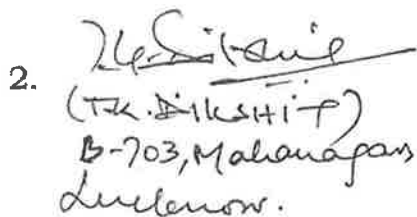 2.
(T.K. DIKSHIT)
B-703, Mahanagar
Lucknow.